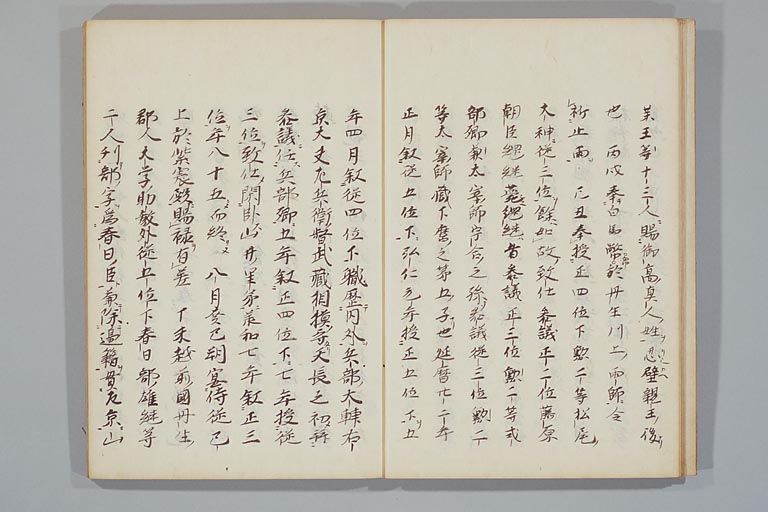 業王等十三人賜御高真人姓忍壁親王後
也 丙戌奉白馬幣於丹生川上雨師令
祈止雨 己丑奉授正四位下勲二等松尾
大神従三位餘如故致仕参議正三位藤原
朝臣継継薨継継者参議正三位勲二等式
部卿兼太宰師宇合之孫参議従三位勲二
等太宰師蔵下麿之第五子也延暦廿二年
正月叙従五位下弘仁元年授正五位下五
年四月叙従四位下職歴内外兵部大輔右
京大夫左兵衛督武蔵相摸守天長之初拝
参議任兵部卿五年叙正四位下七年授従
三位致仕閑臥山井里第承和七年叙正三
位年八十五而終 八月癸巳朔宴侍従已
上於紫宸殿賜禄有差 丁未越前國丹生
郡人大学助教外従五位下春日部雄継等
二人列部字為春日臣兼除邊籍貫左京山